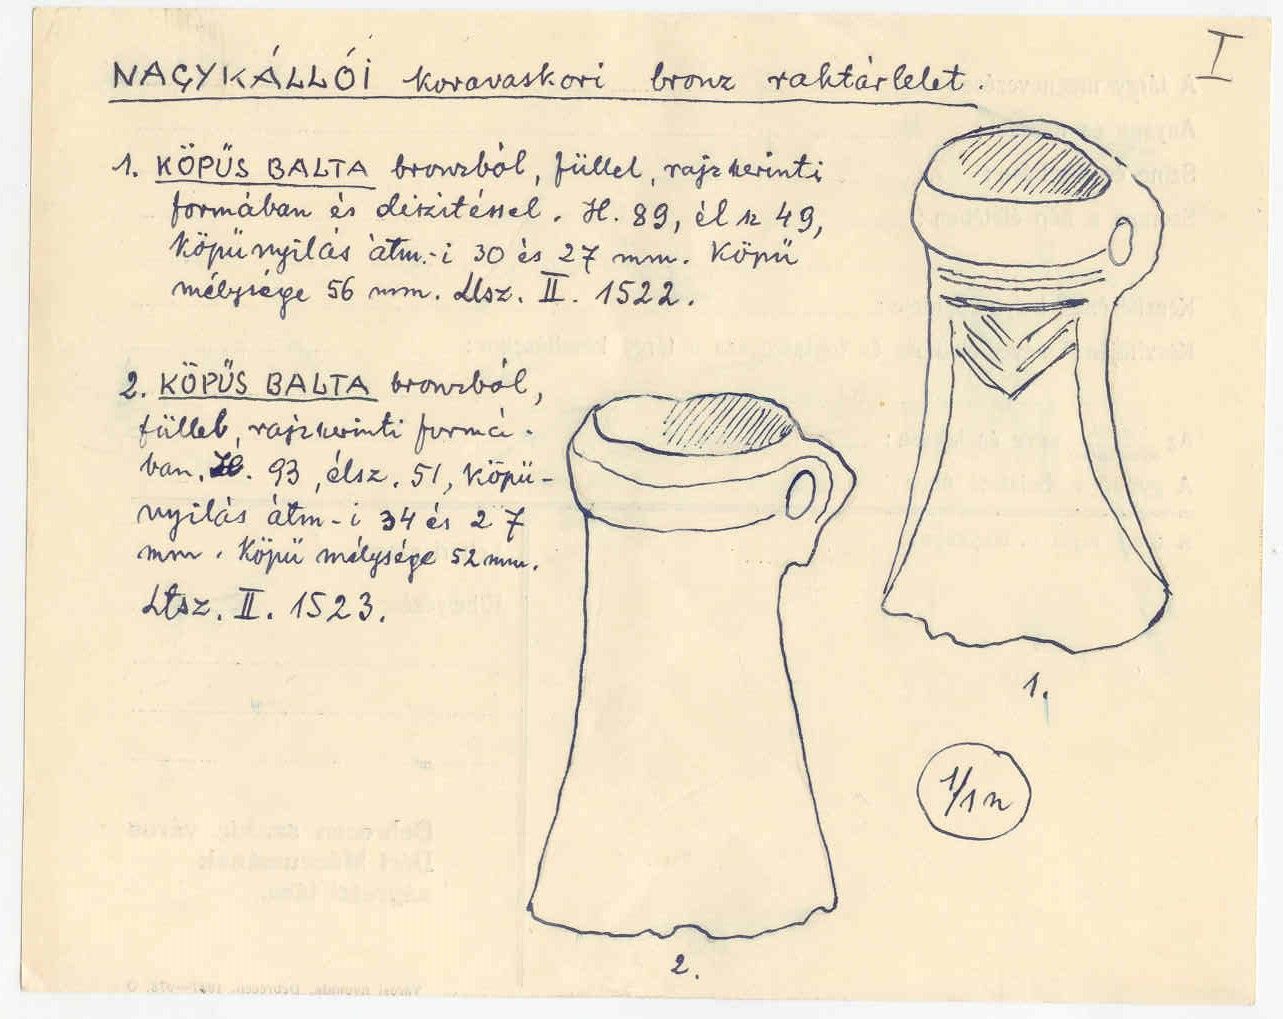 I
NAGYKÁLLÓI koravaskori bronz raktárlelet.
1. KÖPŰS BALTA bronzból, füllel, rajz szerinti
formában és díszítéssel. H. 89, él sz 49,
Köpűnyilás átm.-i 30 és 27 mm. Köpű
mélysége 56 mm. Ltsz. II. 1522.
2. KÖPŰS BALTA bronzból,
füllel, rajz szerinti formá-
ban. H. 93, élsz. 51, Köpű-
nyilás átm-i 34 és 27
mm. Köpű mélysége 52 mm.
Ltsz. II. 1523.
1.
1/1 n
2.